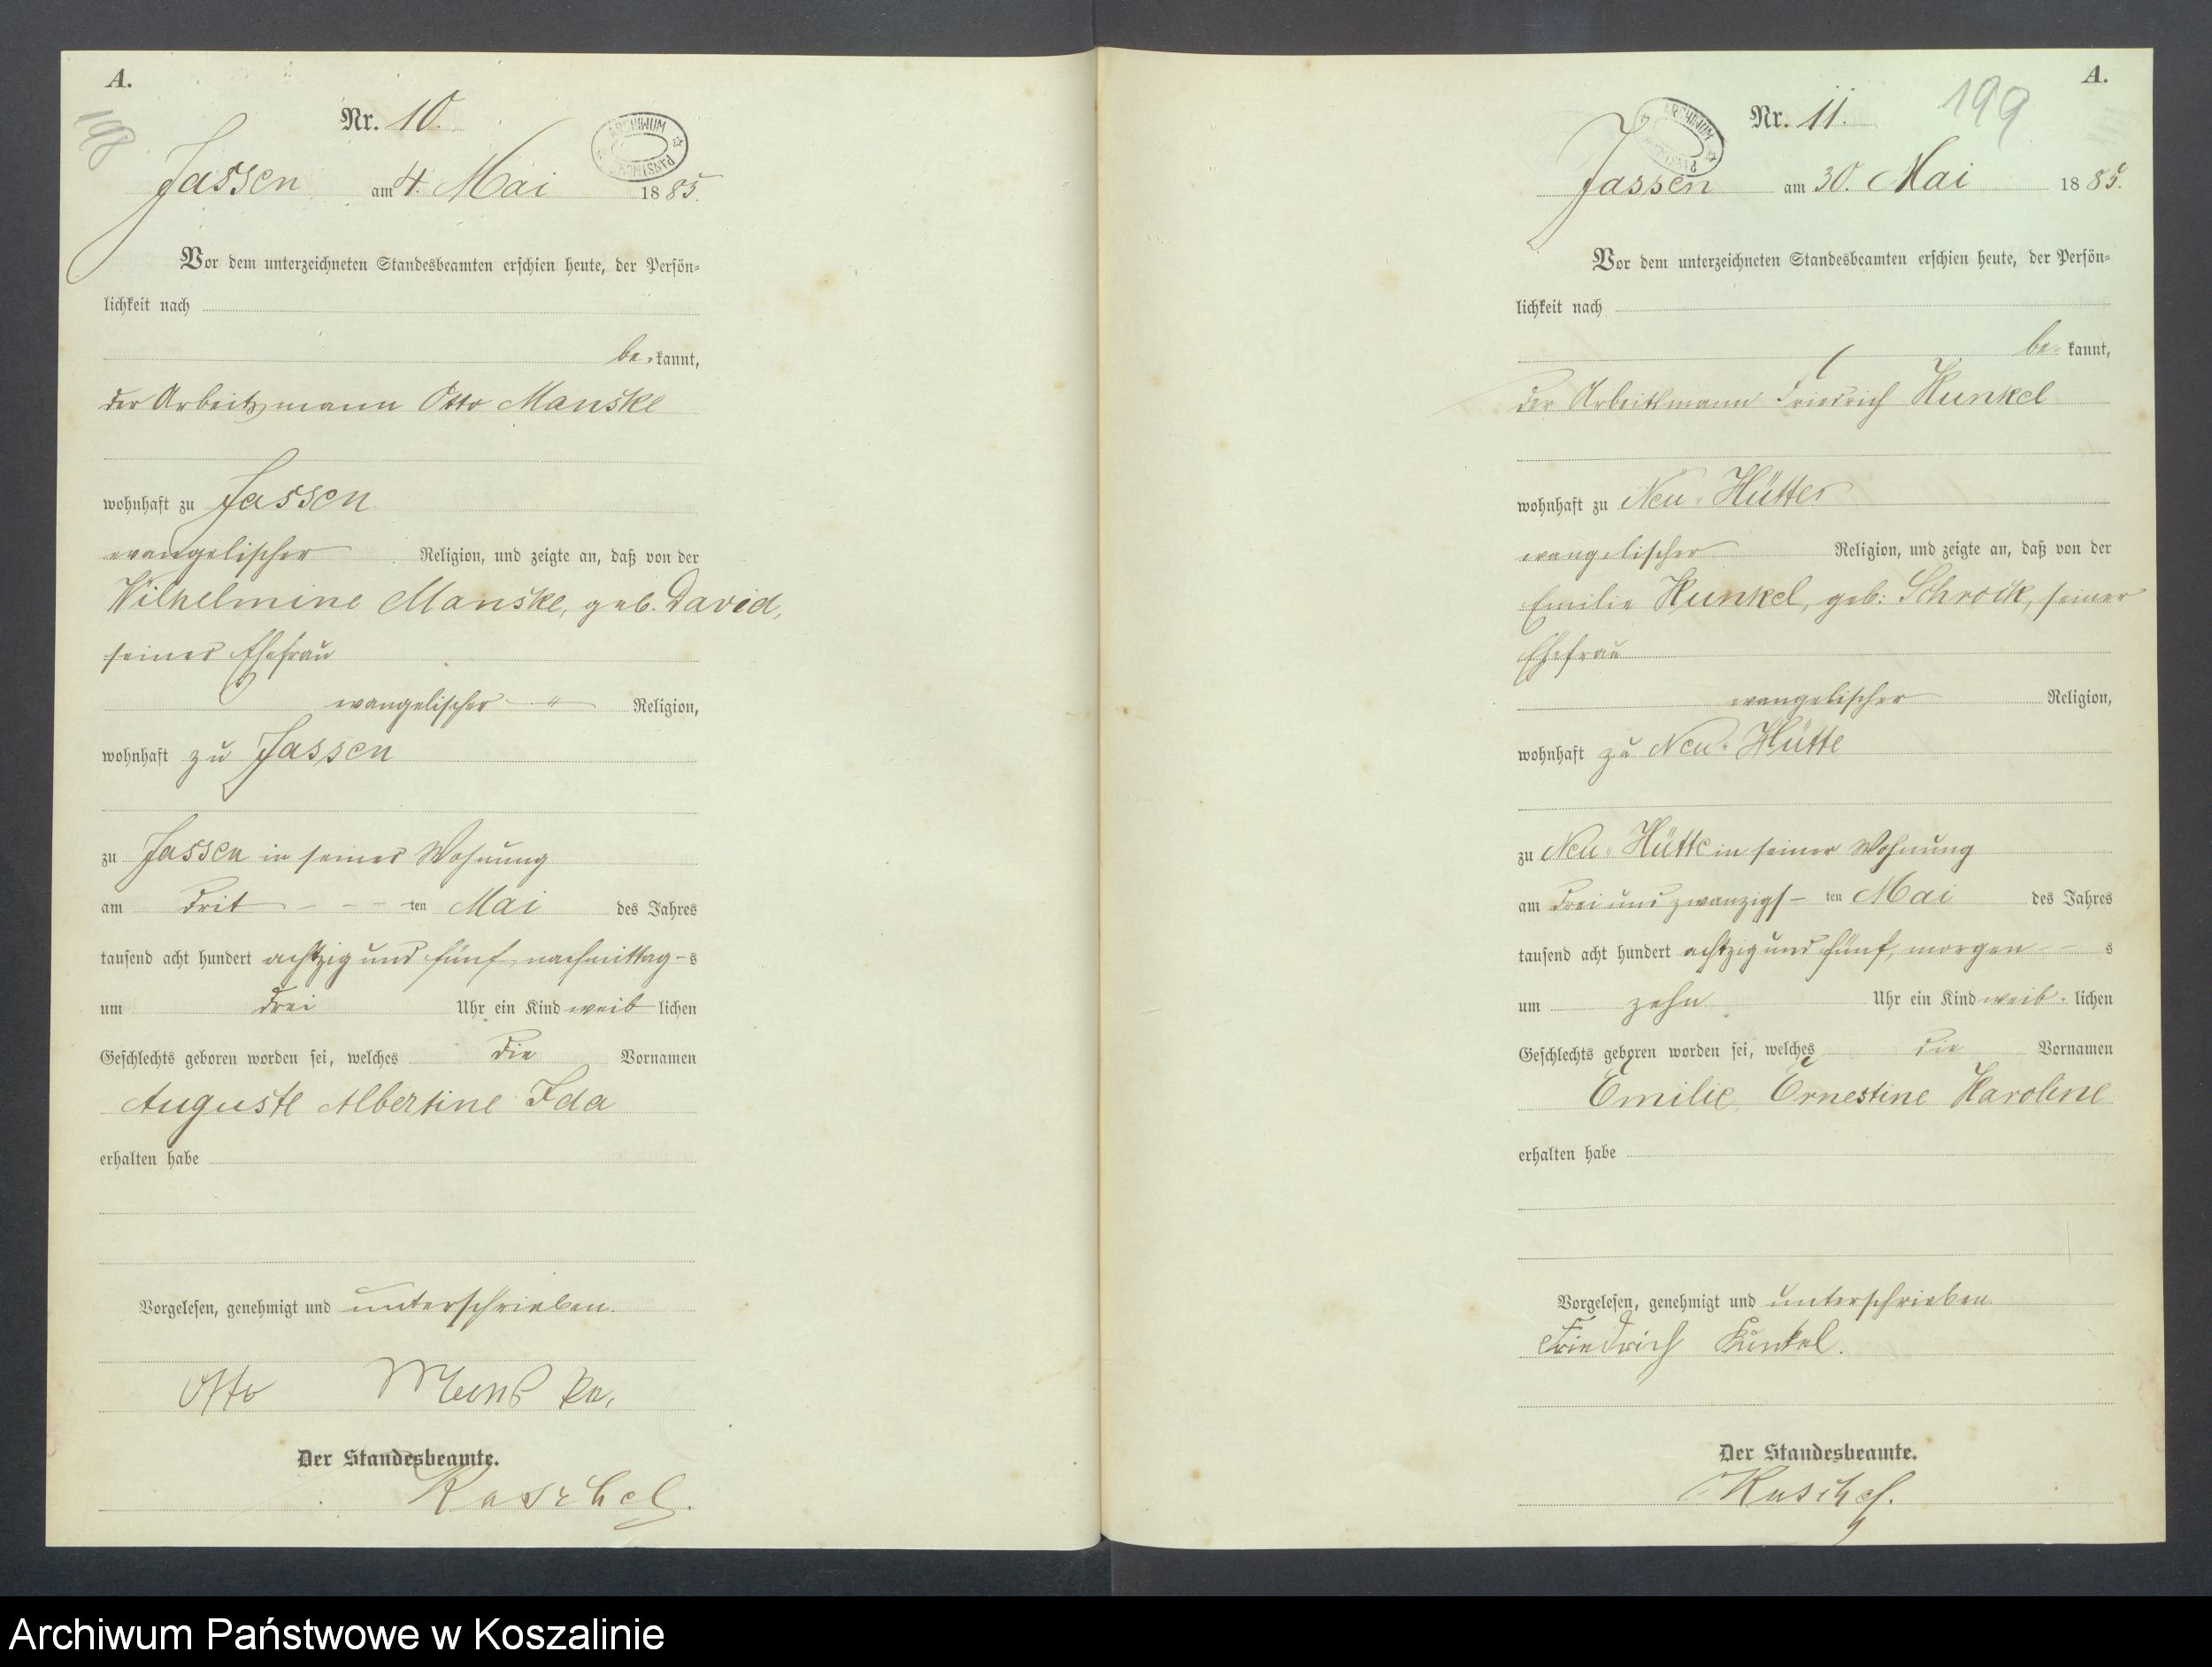 A.
198
Nr. 10.
ARCHIWUM PAŃSTWOWE
Jassen am 4. Mai 1885.
Vor dem unterzeichneten Standesbeamten erschien heute, der Persön=
lichkeit nach
be=kannt,
der Arbeitsmann Otto Manske
wohnhaft zu Jassen
evangelischer Religion, und zeigte an, daß von der
Wilhelmine Manske, geb. David,
seiner Ehefrau
evangelischer Religion,
wohnhaft zu Jassen
zu Jassen in seiner Wohnung
am drit - - - ten Mai des Jahres
tausend acht hundert achtzig und fünf, nachmittag-s
um drei Uhr ein Kind weib lichen
Geschlechts geboren worden sei, welches die Vornamen
Auguste Albertine Ida
erhalten habe
Vorgelesen, genehmigt und unterschrieben.
Otto Manske.
Der Standesbeamte.
Raschel.
A.
199
Nr. 11.
ARCHIWUM PAŃSTWOWE
Jassen am 30. Mai 1885.
Vor dem unterzeichneten Standesbeamten erschien heute, der Persön=
lichkeit nach
be=kannt,
der Arbeitsmann Friedrich Kunkel
wohnhaft zu Neu-Hütte
evangelischer Religion, und zeigte an, daß von der
Emilie Kunkel, geb: Schrock, seiner
Ehefrau
evangelischer Religion,
wohnhaft zu Neu-Hütte
zu Neu-Hütte in seiner Wohnung
am drei und zwanzigs-ten Mai des Jahres
tausend acht hundert achtzig und fünf, morgen - s
um zehn Uhr ein Kind weib=lichen
Geschlechts geboren worden sei, welches die Vornamen
Emilie Ernestine Karoline
erhalten habe
Vorgelesen, genehmigt und unterschrieben.
Friedrich Kunkel.
Der Standesbeamte.
Raschel.
Archiwum Państwowe w Koszalinie